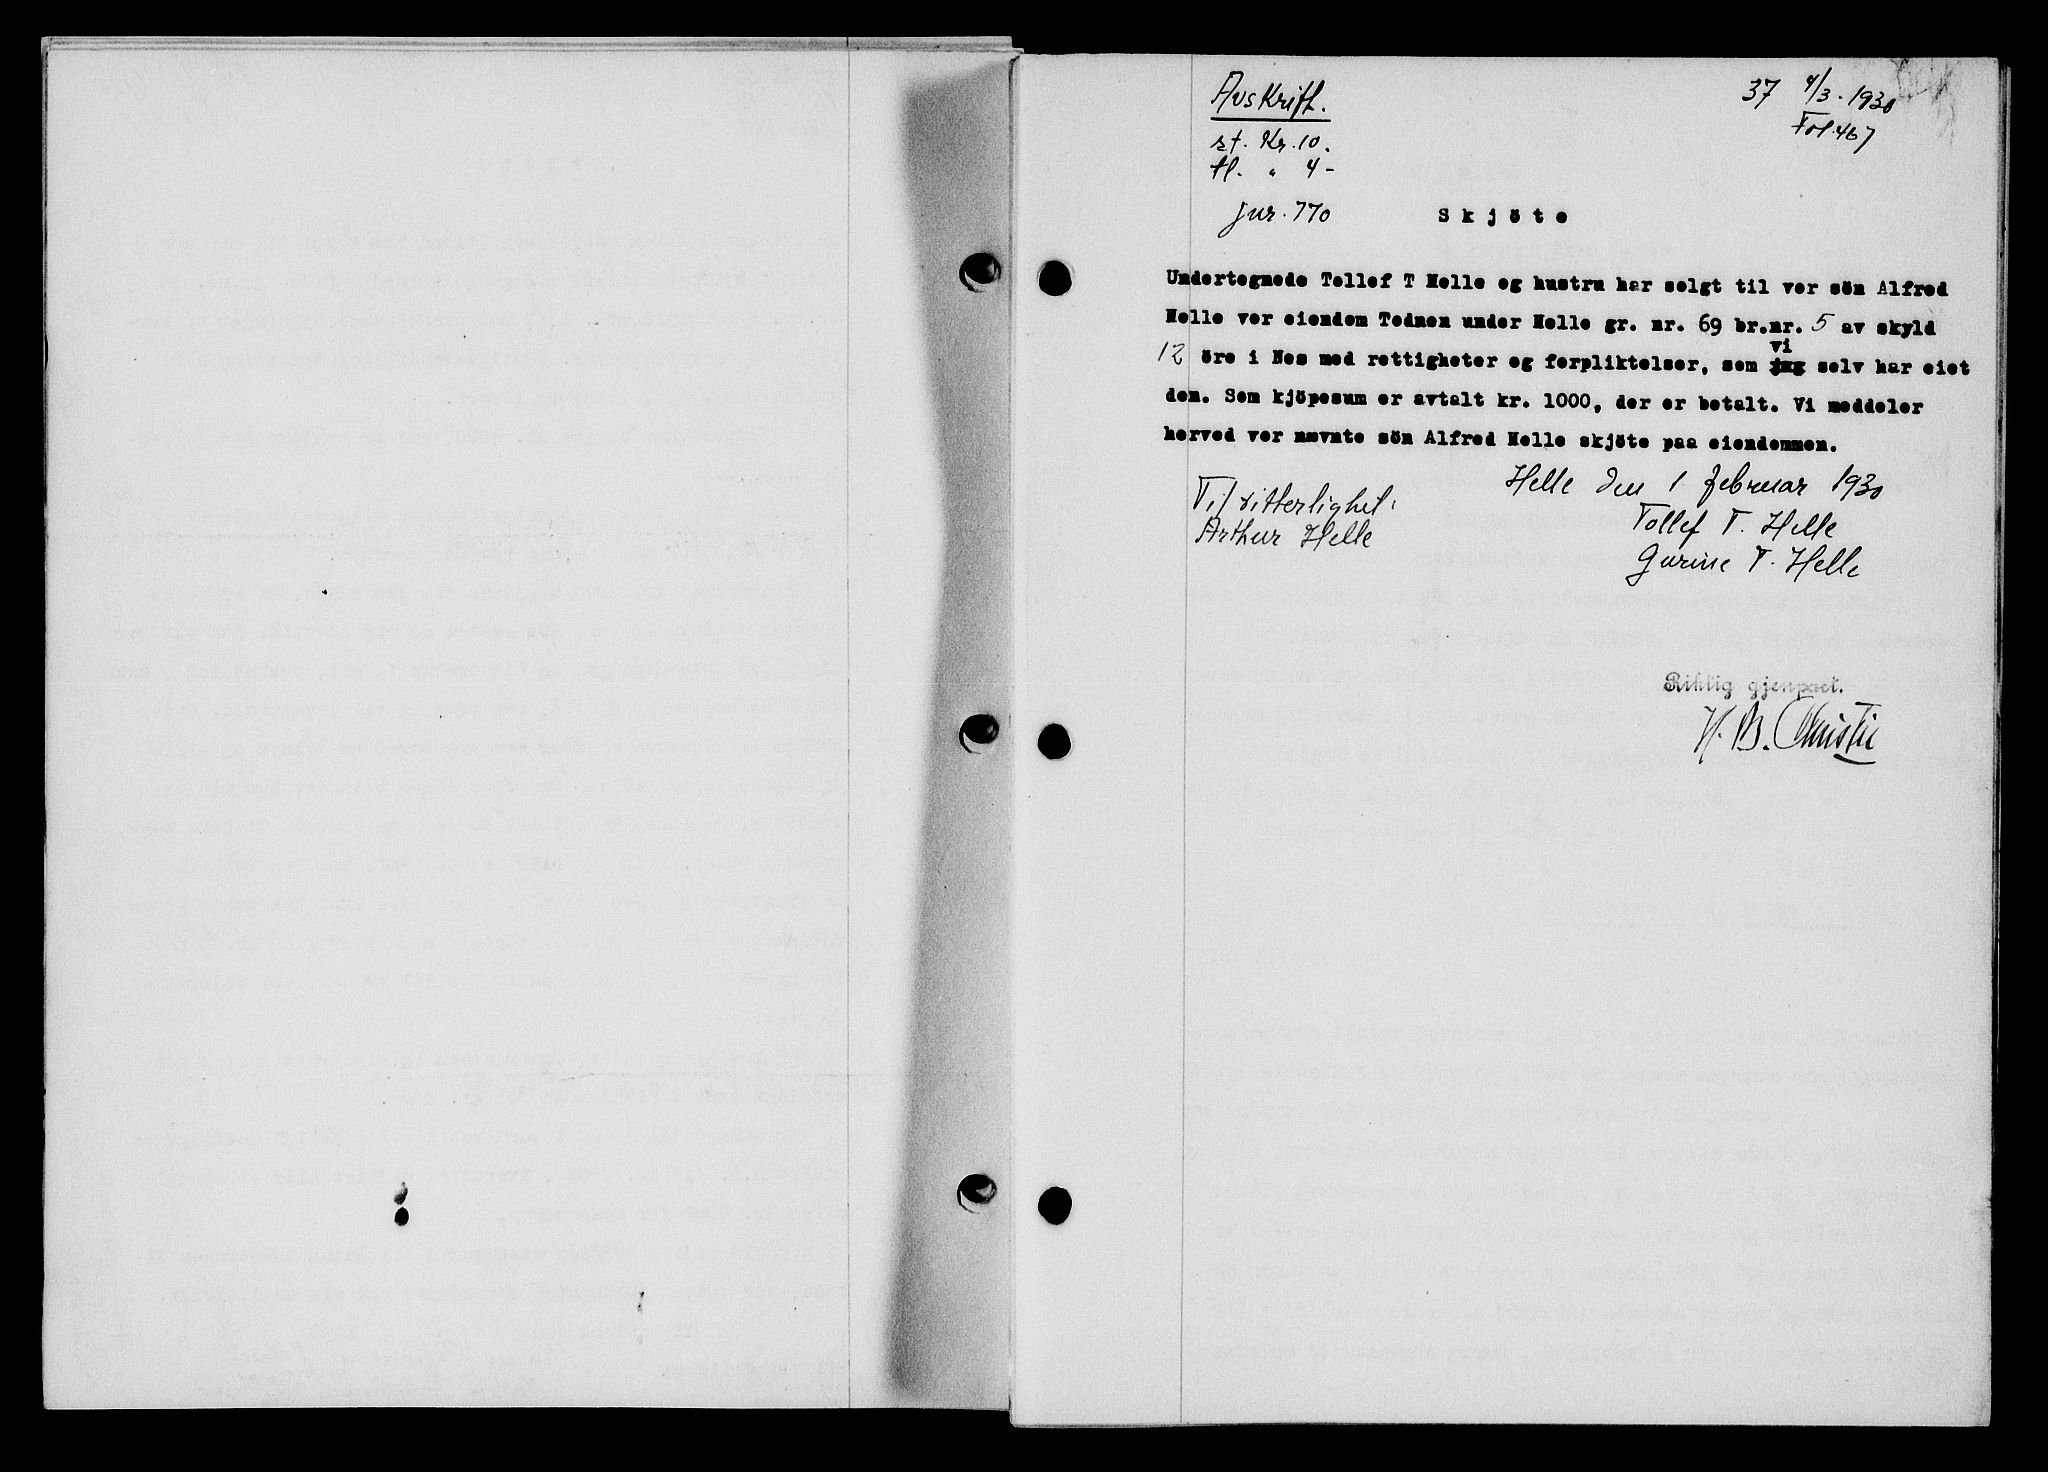 Avskrift.
37 4/3. 1930
Fol. 467
st. Kr. 10.
tl. " 4 -
jnr. 770
Skjöte
Undertegnede Tollef T Helle og hustru har solgt til vor sön Alfred
Helle vor eiendom Tednen under Helle gr. nr. 69 br.nr. 5 av skyld
12 öre i Nes med rettigheter og forpliktelser, som vi selv har eiet
den. Som kjöpesum er avtalt kr. 1000, der er betalt. Vi meddeler
herved vor nævnte sön Alfred Helle skjöte paa eiendommen.
Helle den 1 februar 1930
Til vitterlighet:
Tollef T. Helle
Arthur Helle
Gurine T. Helle
Riktig gjenpart.
H. B. Christie